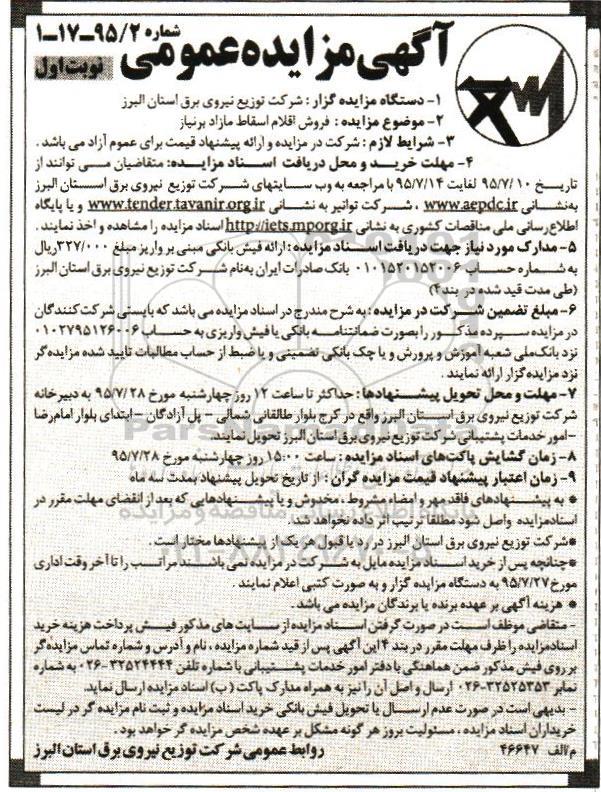 آگهی مزایده عمومی
شماره ۹۵/۲-۱۷-۱
نوبت اول
۱- دستگاه مزایده گزار : شرکت توزیع نیروی برق استان البرز
۲- موضوع مزایده : فروش اقلام اسقاط مازاد برنیاز
۳- شرایط لازم : شرکت در مزایده و ارائه پیشنهاد قیمت برای عموم آزاد می باشد .
۴- مهلت خرید و محل دریافت اسناد مزایده: متقاضیان می توانند از
تاریخ ۹۵/۷/۱۰ لغایت ۹۵/۷/۱۴ با مراجعه به وب سایتهای شرکت توزیع نیروی برق استان البرز
به نشانی www.aepdc.ir ، شرکت توانیر به نشانی www.tender.tavanir.org.ir و یا پایگاه
اطلاع رسانی ملی مناقصات کشوری به نشانی http://iets.mporg.ir اسناد مزایده را مشاهده و اخذ نمایند .
۵- مدارک مورد نیاز جهت دریافت اسناد مزایده : ارائه فیش بانکی مبنی بر واریز مبلغ ۳۲۷/۰۰۰ ریال
به شماره حساب ۰۱۰۱۵۲۰۱۵۲۰۰۶ بانک صادرات ایران به نام شرکت توزیع نیروی برق استان البرز
(طی مدت قید شده در بند۴)
۶- مبلغ تضمین شرکت در مزایده : به شرح مندرج در اسناد مزایده می باشد که بایستی شرکت کنندگان
در مزایده سپرده مذکور را بصورت ضمانتنامه بانکی یا فیش واریزی به حساب ۰۱۰۲۷۹۵۱۲۶۰۰۶
نزد بانک ملی شعبه آموزش و پرورش و یا چک بانکی تضمینی و یا ضبط از حساب مطالبات تایید شده مزایده گر
نزد مزایده گزار ارائه نمایند .
۷- مهلت و محل تحویل پیشنهادها : حداکثر تا ساعت ۱۲ روز چهارشنبه مورخ ۹۵/۷/۲۸ به دبیرخانه
شرکت توزیع نیروی برق استان البرز واقع در کرج بلوار طالقانی شمالی - پل آزادگان - ابتدای بلوار امام رضا
- امور خدمات پشتیبانی شرکت توزیع نیروی برق استان البرز تحویل نمایند.
۸- زمان گشایش پاکت های اسناد مزایده : ساعت ۱۵:۰۰ روز چهارشنبه مورخ ۹۵/۷/۲۸
۹- زمان اعتبار پیشنهاد قیمت مزایده گران : از تاریخ تحویل پیشنهاد بمدت سه ماه
* به پیشنهادهای فاقد مهر و امضاء مشروط ، مخدوش و یا پیشنهادهایی که بعد از انقضای مهلت مقرر در
اسناد مزایده واصل شود مطلقا ترتیب اثر داده نخواهد شد.
* شرکت توزیع نیروی برق استان البرز در رد یا قبول هر یک از پیشنهادها مختار است .
* چنانچه پس از خرید اسناد مزایده مایل به شرکت در مزایده نمی باشند مراتب را تا آخر وقت اداری
مورخ ۹۵/۷/۲۷ به دستگاه مزایده گزار و به صورت کتبی اعلام نمایند .
* هزینه آگهی بر عهده برنده یا برندگان مزایده می باشد .
- متقاضی موظف است در صورت گرفتن اسناد مزایده از سایت های مذکور فیش پرداخت هزینه خرید
اسناد مزایده را ظرف مهلت مقرر در بند ۴ این آگهی پس از قید شماره مزایده ، نام و آدرس و شماره تماس مزایده گر
بر روی فیش مذکور ضمن هماهنگی با دفتر امور خدمات پشتیبانی با شماره تلفن ۳۲۵۲۴۴۴۴-۰۲۶ به شماره
نمابر ۳۲۵۲۵۳۵۳-۰۲۶ ارسال و اصل آن را نیز به همراه مدارک پاکت (ب) اسناد مزایده ارسال نماید.
- بدیهی است در صورت عدم ارسال یا تحویل فیش بانکی خرید اسناد مزایده و ثبت نام مزایده گر در لیست
خریداران اسناد مزایده ، مسئولیت بروز هر گونه مشکل بر عهده شخص مزایده گر خواهد بود .
م الف ۴۶۶۴۷ روابط عمومی شرکت توزیع نیروی برق استان البرز